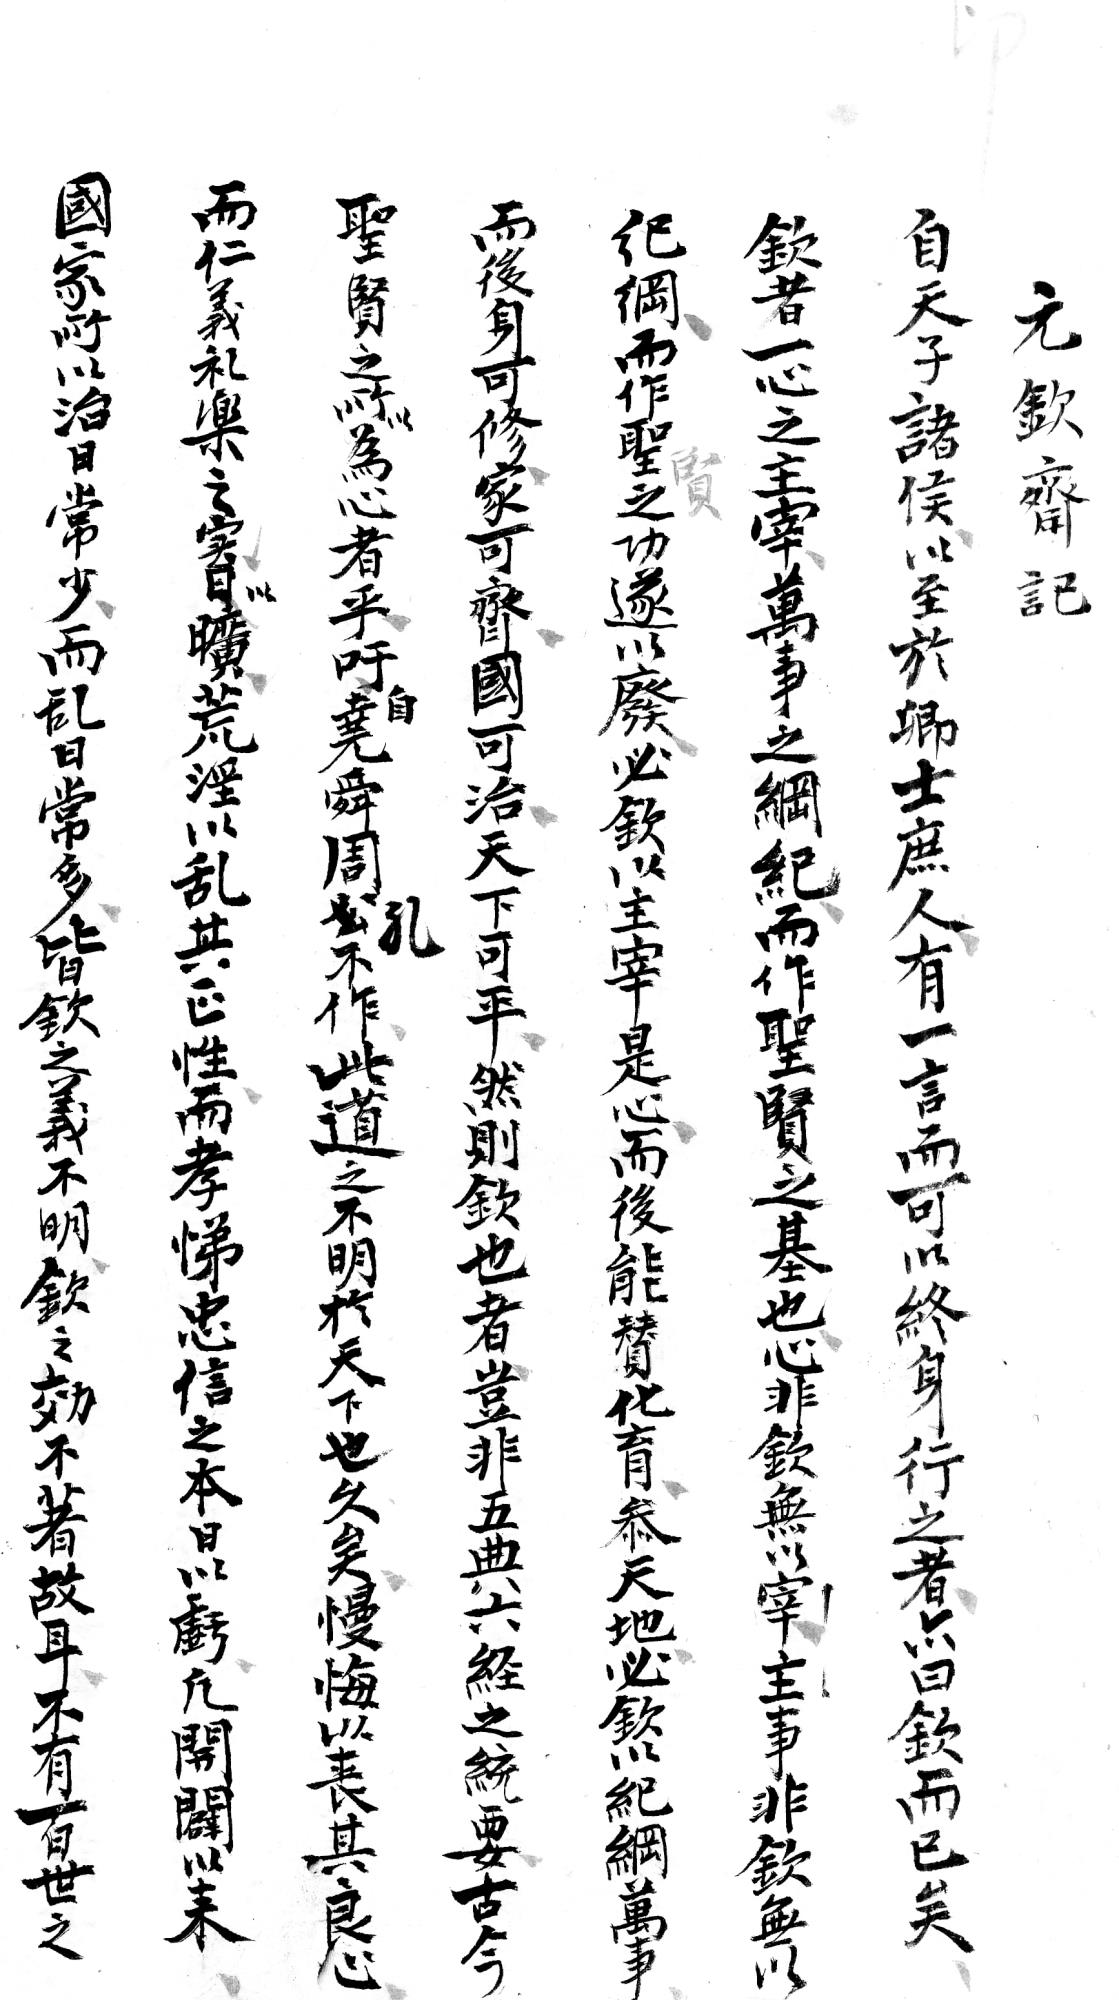 元欽齋記
自天子諸侯以至於卿士庶人有一言而可以終身行之者亦曰欽而已矣
欽者一心之主宰萬事之綱紀而作聖賢之基也心非欽無以宰主事非欽無以
紀綱而作聖賢之功遂以廢必欽以主宰是心而後能贊化育叅天地必欽以紀綱萬事
而後身可修家可齊國可治天下可平然則欽也者豈非五典六経之統要古今
聖賢之所以為心者乎吁自堯舜周孔不作此道之不明於天下也久矣慢侮以丧其良心
而仁義礼楽之實以曠荒淫以乱其正性而孝悌忠信之本日以虧凢開闢以来
國家所以治日常少而乱日常多皆欽之義不明欽之効不著故耳不有百世之